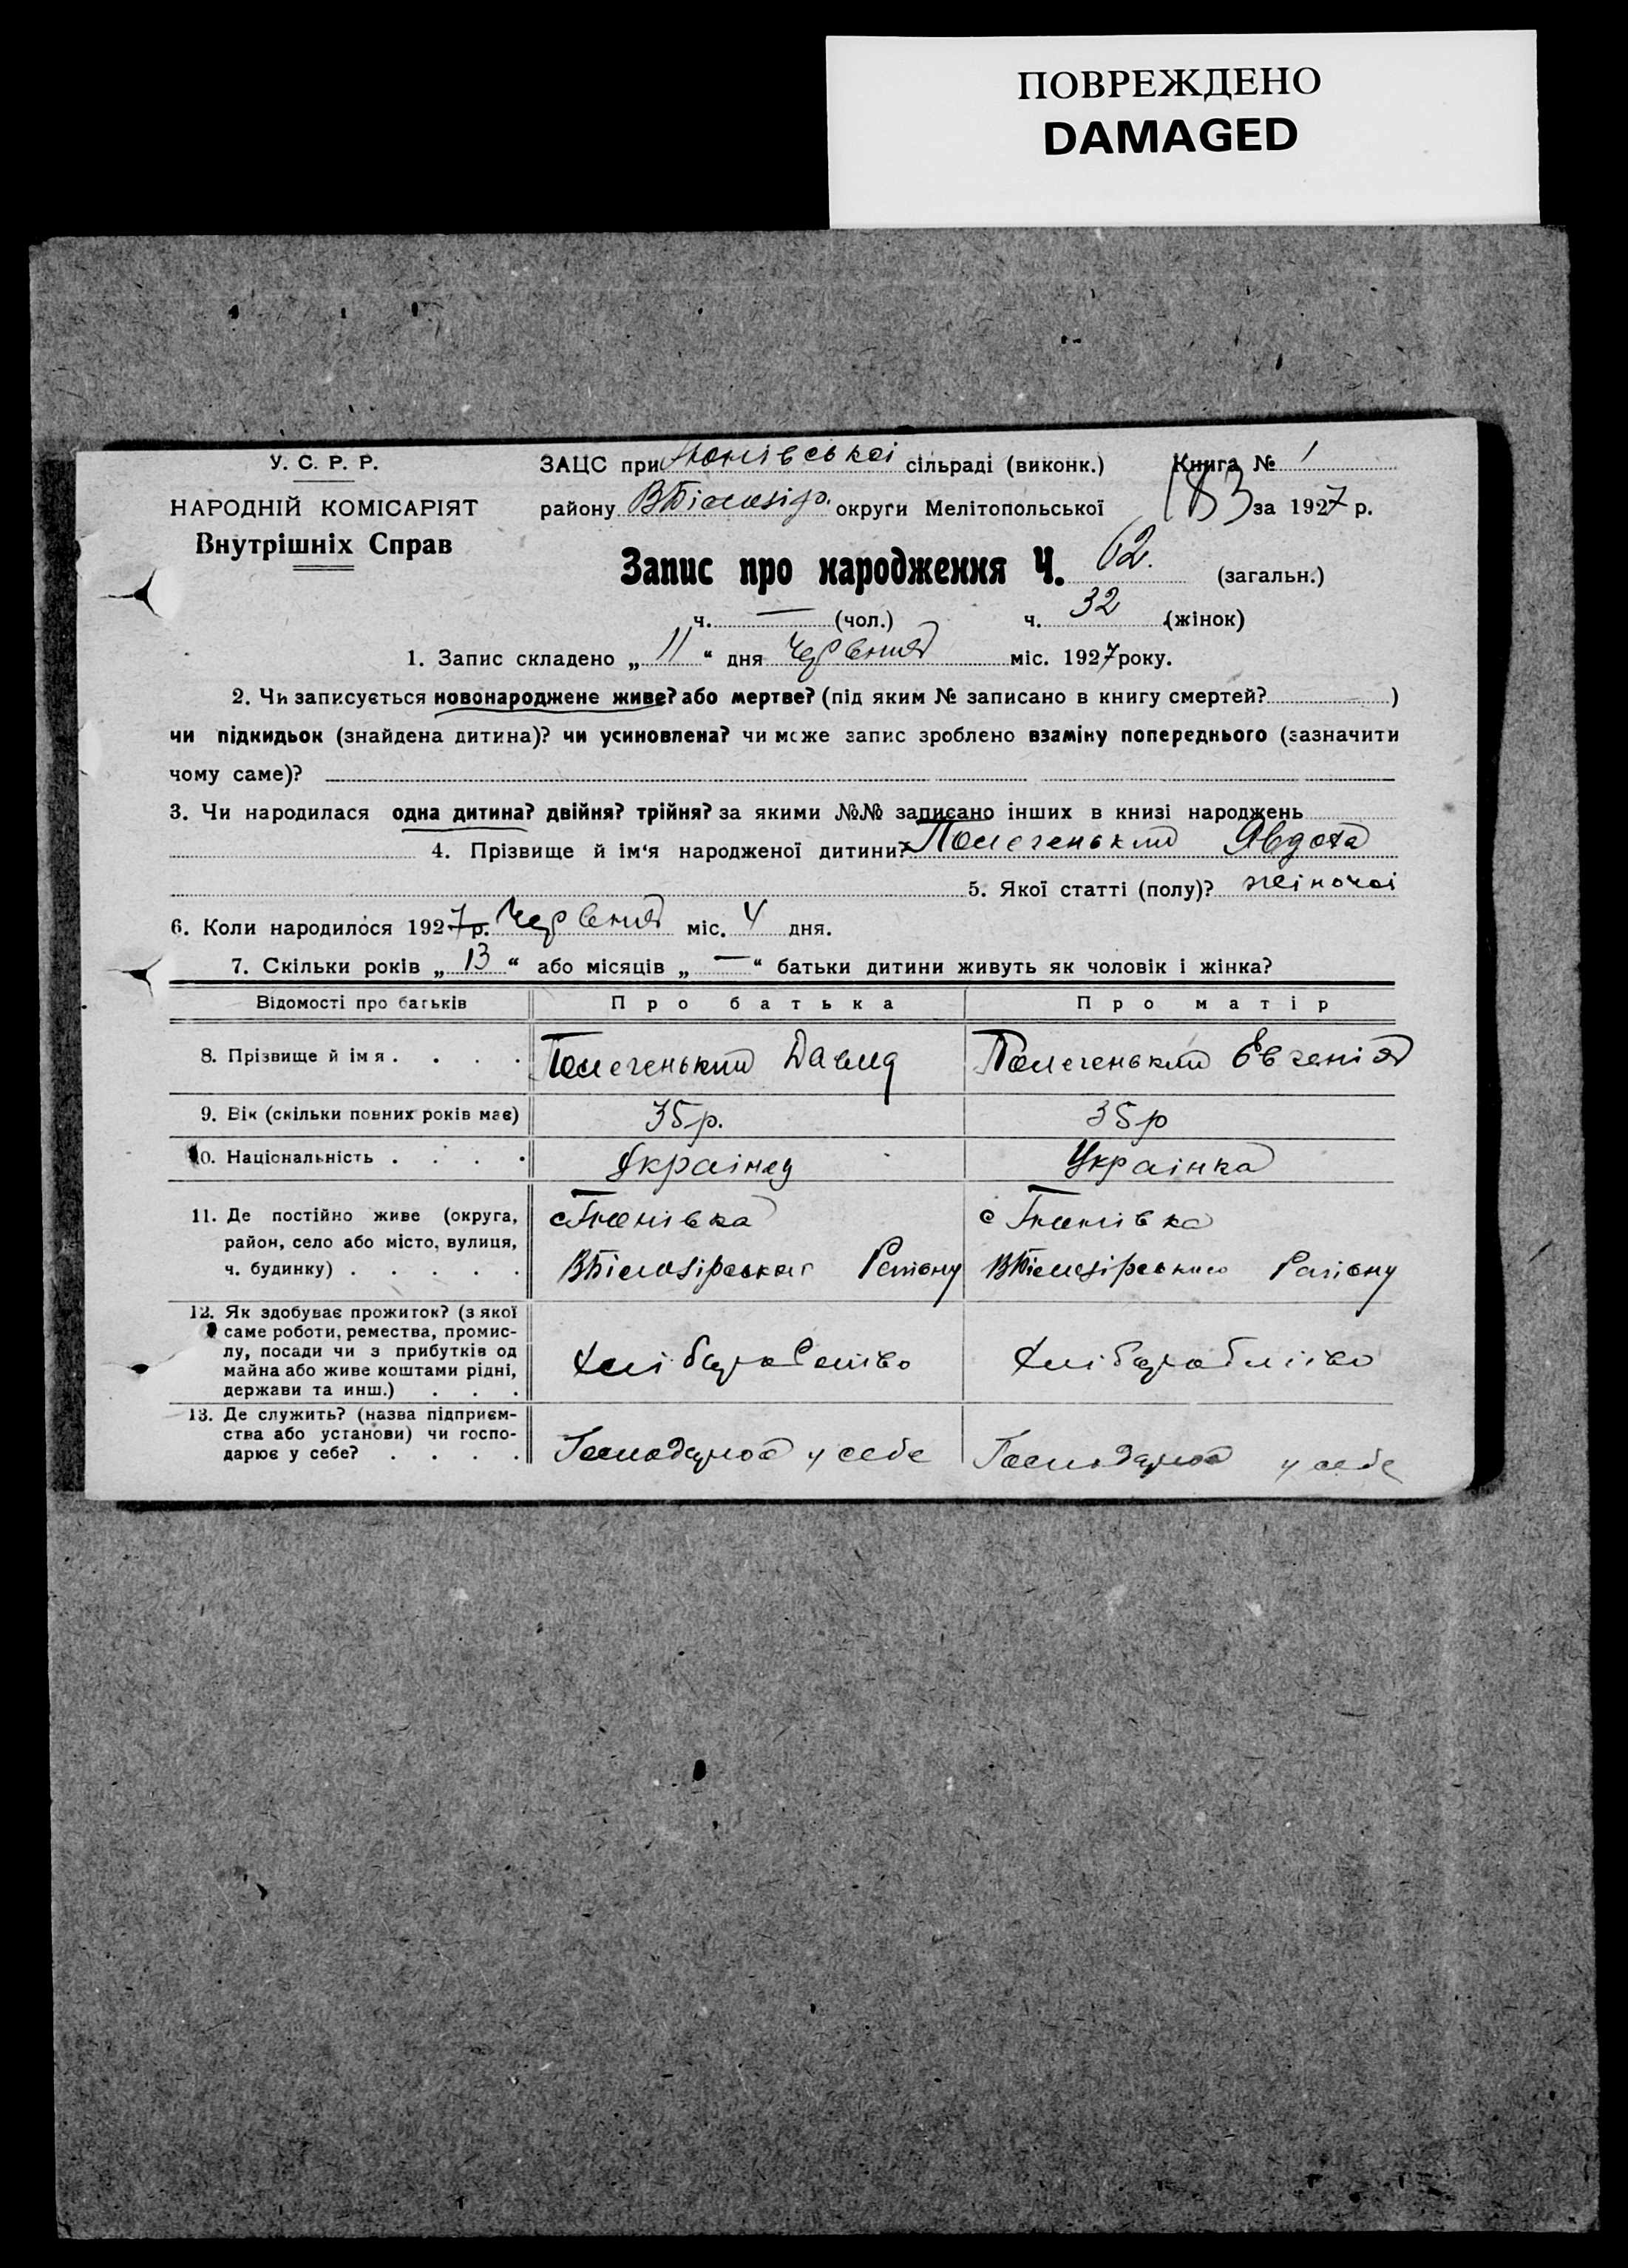 ПОВРЕЖДЕНО
DAMAGED
У. С. Р. Р.
НАРОДНІЙ КОМІСАРІЯТ
Внутрішніх Справ
ЗАЦС при сільраді (виконк.) Книга № 1
району ВБілозір. округи Мелітопольської 183 за 1927 р.
Запис про народження Ч. 62. (загальн.)
ч. — (чол.) ч. 32 (жінок)
1. Запис складено „ 11 “ дня Червня міс. 1927 року.
2. Чи записується новонароджене живе? або мертве? (під яким № записано в книгу смертей? )
чи підкидьок (знайдена дитина)? чи усиновлена? чи може запис зроблено взаміну попереднього (зазначити
чому саме)?
3. Чи народилася одна дитина? двійня? трійня? за якими №№ записано інших в книзі народжень
4. Прізвище й ім‘я народженої дитини? Явдоха
5. Якої статті (полу)? жіночої
6. Коли народилося 1927 р. Червня міс. 4 дня.
7. Скільки років „ 13 “ або місяців „ — “ батьки дитини живуть як чоловік і жінка?
Відомості про батьків Про батька Про матір
8. Прізвище й імя . . . . Давид Євгенія
9. Вік (скільки повних років має) 35 р. 35 р
10. Національність . . . . Українец Українка
11. Де постійно живе (округа,
район, село або місто, вулиця,
ч. будинку) . . . . .
с
с
ВБілозірського Району ВБілозірського Району
12. Як здобуває прожиток? (з якої
саме роботи, ремества, промис-
лу, посади чи з прибутків од
майна або живе коштами рідні,
держави та инш.) . . .
Хліборобство Хліборобство
13. Де служить? (назва підприєм-
ства або установи) чи госпо-
дарює у себе? . . . .
у себе у себе